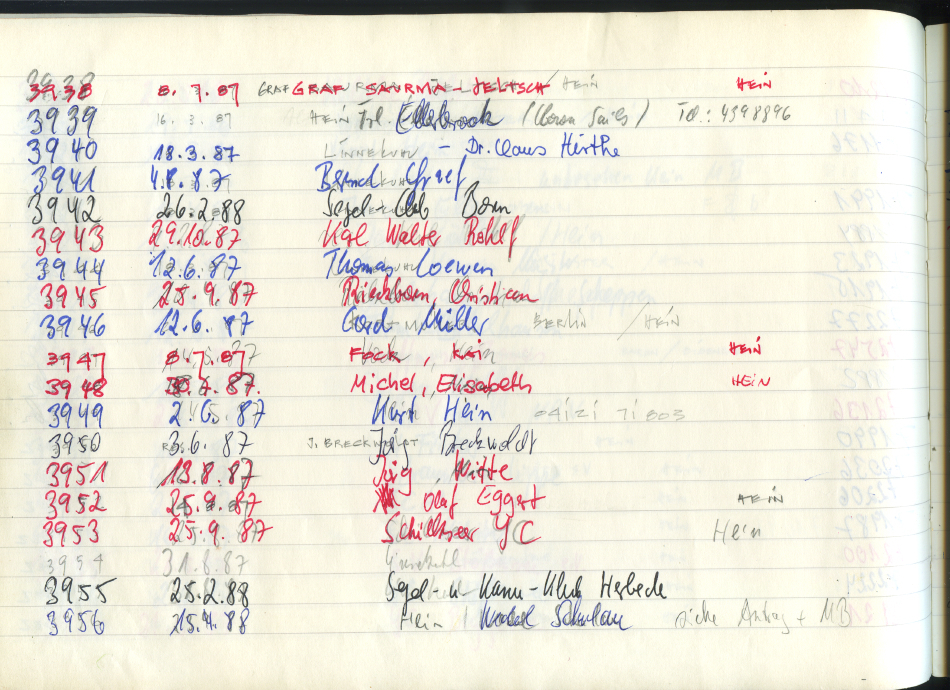 3938 8.7.87 GRAF SAURMA-JELTSCH / HEIN HEIN
3939 16.3.87 HEIN Frl. Ellerbrock Tel.: 4398896
3940 18.3.87 LINNEKUHL - Dr. Claus Hirthe
3941 4.8.87 Bernd Graef
3942 26.2.88 Segel-Club Bonn
3943 29.10.87 Karl Walter Rohlf
3944 12.6.87 Thomas Loewen
3945 25.9.87 Rieckborn, Christian
3946 12.6.87 Cord Müller BERLIN / HEIN
3947 8.7.87 Fock, Kai HEIN
3948 30.7.87. Michel, Elisabeth HEIN
3949 2.6.87 Kurt Hein 04121 71803
3950 3.6.87 J. BRECKWOLDT Jürg Breckwoldt
3951 13.8.87 Jürg Witte
3952 25.9.87 Olaf Eggert HEIN
3953 25.9.87 Schilkseer YC Hein
3954 31.8.87 Linnekuhl
3955 25.2.88 Segel-u-Kanu-Klub Herbede
3956 15.4.88 Hein / Wedel Schulau siehe Antrag + MB